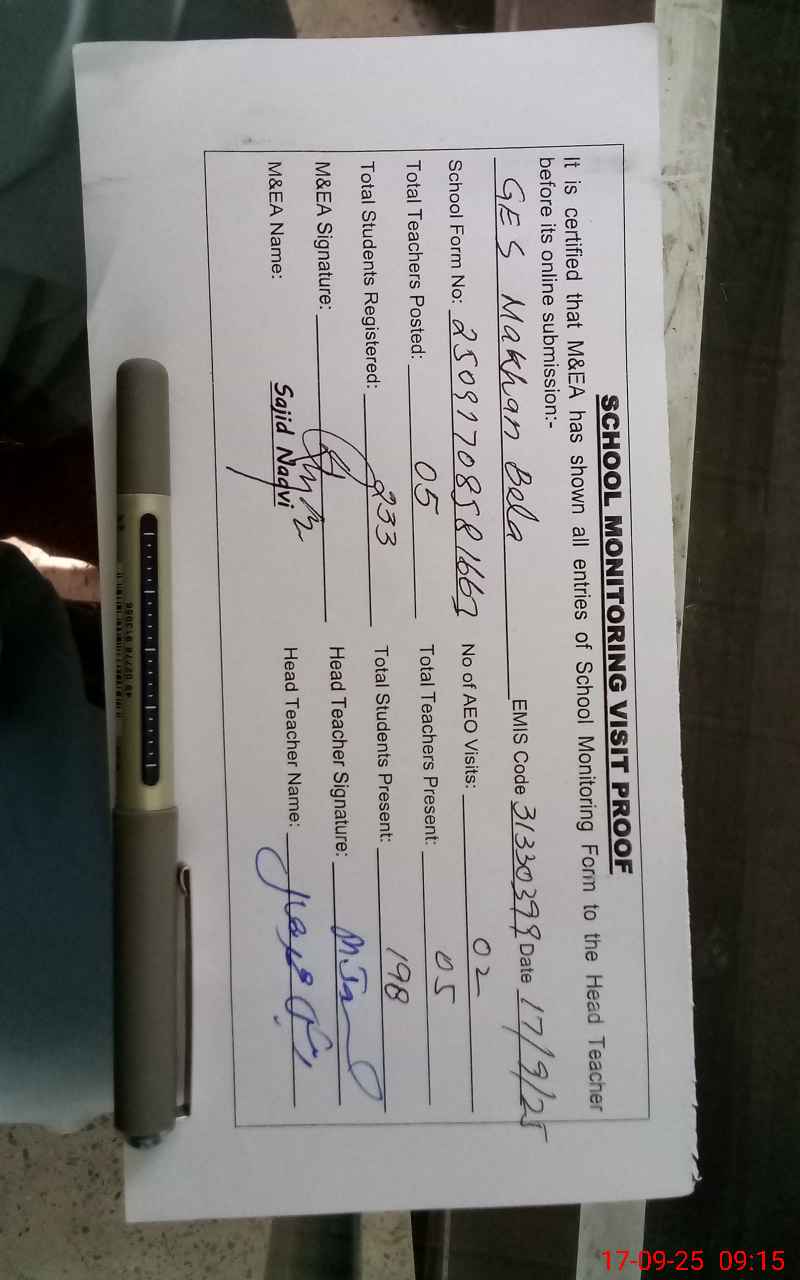 SCHOOL MONITORING VISIT PROOF
It is certified that M&EA has shown all entries of School Monitoring Form to the Head Teacher
before its online submission:-
GES Makhan Bela EMIS Code 31330399 Date 17/9/25
School Form No: 25091708581667 No of AEO Visits: 02
Total Teachers Posted: 05 Total Teachers Present: 05
Total Students Registered: 233 Total Students Present: 198
M&EA Signature: Head Teacher Signature:
M&EA Name: Sajid Naqvi Head Teacher Name:
17-09-25 09:15